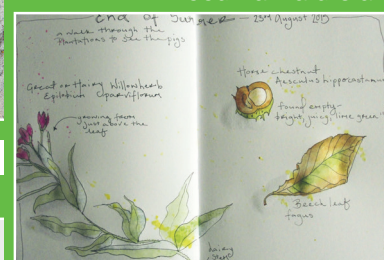 End of Summer – 23rd August 2015
a walk through the
Plantations to see the pigs
Great or Hairy Willowherb
Epilobium Parviflorum
growing from
just above the
leaf
Horse chestnut
Aesculus hippocastanum
found empty-
bright, juicy, lime green
Beech leaf
fagus
hairy
stem